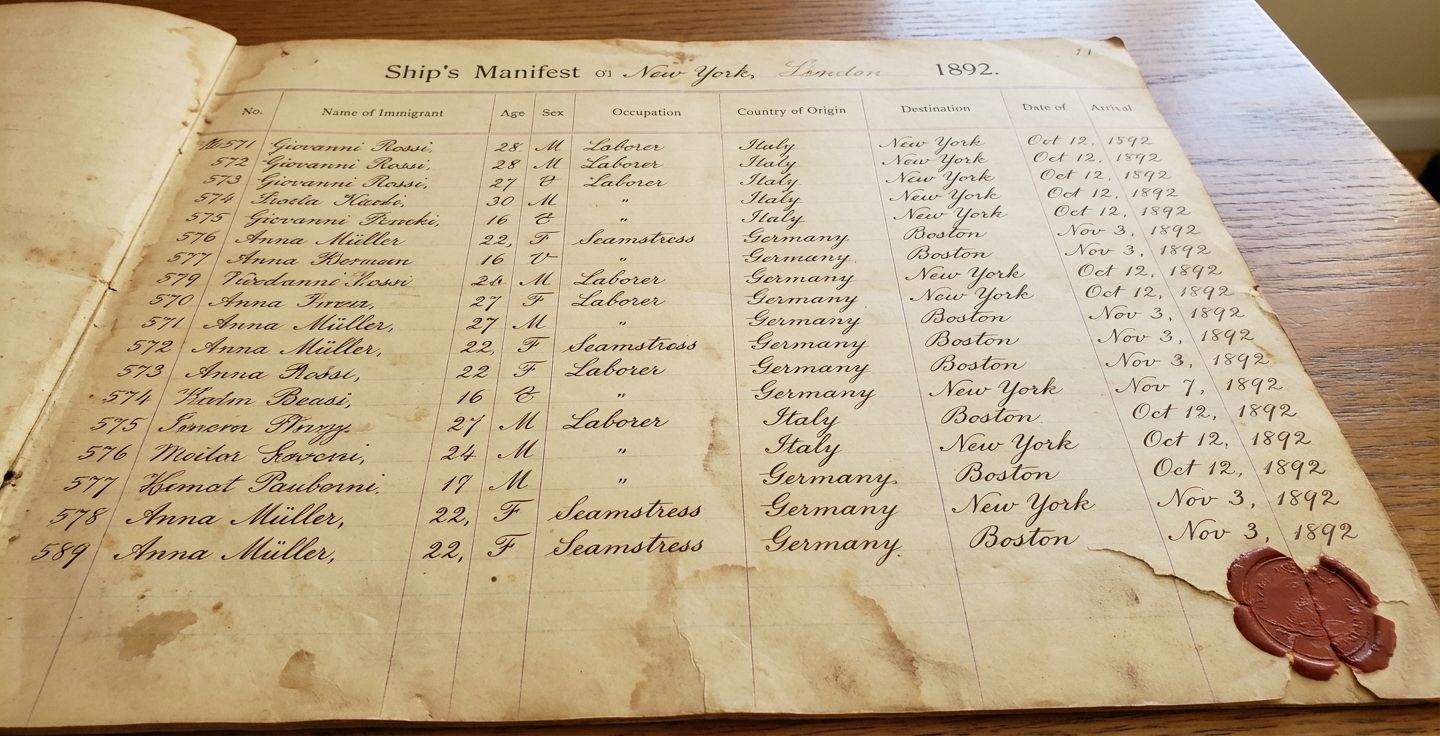 Ship's Manifest of New York, London 1892.
No. Name of Immigrant Age Sex Occupation Country of Origin Destination Date of Arrival
571 Giovanni Rossi, 28 M Laborer Italy New York Oct 12, 1592
572 Giovanni Rossi, 28 M Laborer Italy New York Oct 12, 1892
573 Giovanni Rossi, 27 Laborer Italy New York Oct 12, 1892
574 30 M " Italy New York Oct 12, 1892
575 Giovanni 16 " Italy New York Oct 12, 1892
576 Anna Müller 22, F Seamstress Germany Boston Nov 3, 1892
577 Anna 16 " Germany. Boston Nov 3, 1892
579 24 M Laborer Germany New York Oct 12, 1892
570 Anna 27 F Laborer Germany New York Oct 12, 1892
571 Anna Müller, 27 M " Germany Boston Nov 3, 1892
572 Anna Müller, 22, F Seamstress Germany Boston Nov 3, 1892
573 Anna Rossi, 22 F Laborer Germany Boston Nov 3, 1892
574 Beasi, 16 " Germany New York Nov 7, 1892
575 27 M Laborer Italy Boston Oct 12, 1892
576 24 M " Italy New York Oct 12, 1892
577 Pauberni. M " Germany Boston Oct 12, 1892
578 Anna Müller, 22, F Seamstress Germany New York Nov 3, 1892
589 Anna Müller, 22, F Seamstress Germany. Boston Nov 3, 1892